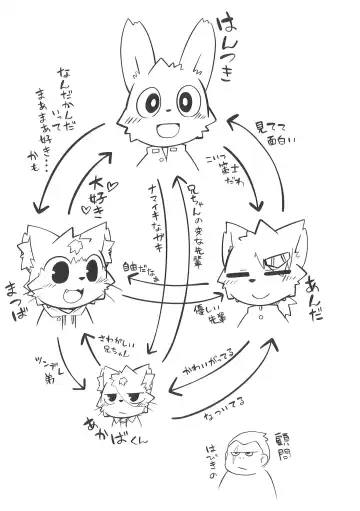 はんつき
なんだかんだ
いって
まあまあ好き…
かも
見てて
面白い
こいつ
策士
だわ
大好き
ナマイキなガキ
兄ちゃんの変な先輩
まつば
自由だなぁ
優しい
先輩
あんだ
ツンデレ
弟
さわがしい
兄ちゃん
かわいがってる
なついてる
あかばくん
顧問
はびきの